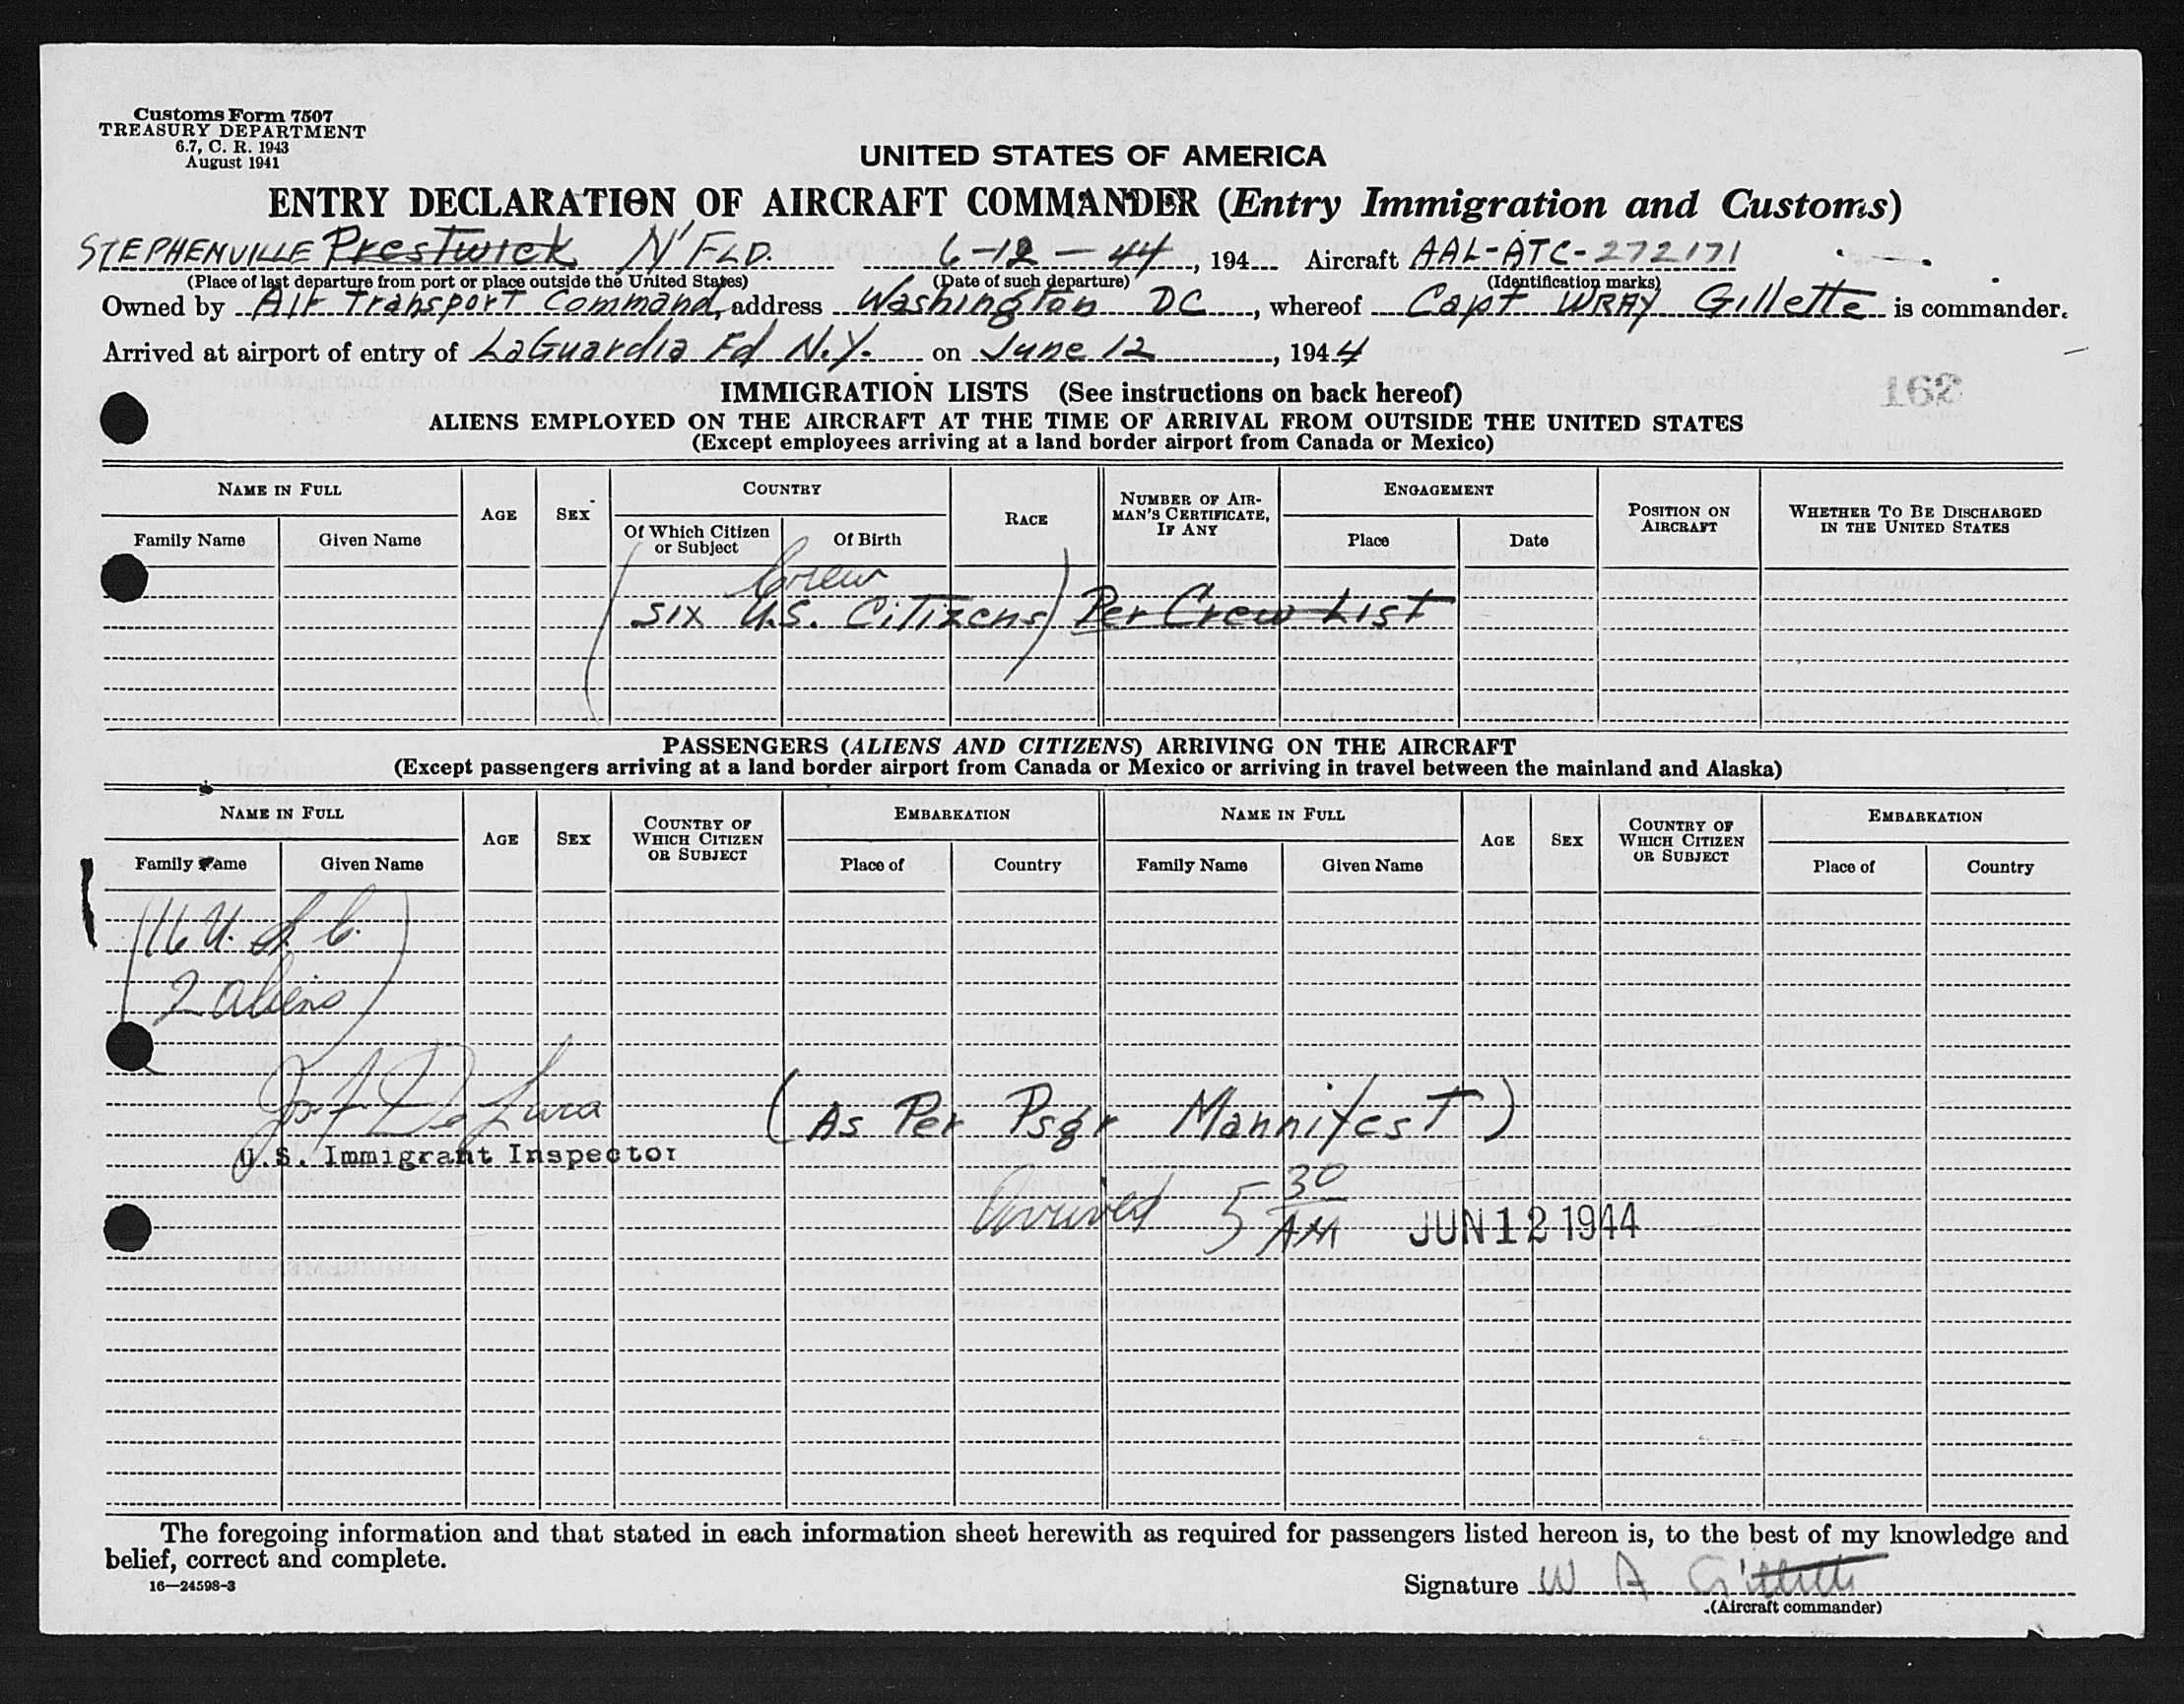 Customs Form 7507
TREASURY DEPARTMENT
6.7, C. R. 1943
August 1941
UNITED STATES OF AMERICA
ENTRY DECLARATION OF AIRCRAFT COMMANDER (Entry Immigration and Customs)
STEPHENVILLE Prestwick N'FLD. 6-12-44, 194 Aircraft AAL-ATC-272171
(Place of last departure from port or place outside the United States) (Date of such departure) (Identification marks)
Owned by Air Transport Command, address Washington DC, whereof Capt WRAY Gillette is commander.
Arrived at airport of entry of LaGuardia Fd N.Y. on June 12, 1944
162
IMMIGRATION LISTS (See instructions on back hereof)
ALIENS EMPLOYED ON THE AIRCRAFT AT THE TIME OF ARRIVAL FROM OUTSIDE THE UNITED STATES
(Except employees arriving at a land border airport from Canada or Mexico)
NAME IN FULL AGE SEX COUNTRY RACE NUMBER OF AIRMAN'S CERTIFICATE, IF ANY ENGAGEMENT POSITION ON AIRCRAFT WHETHER TO BE DISCHARGED IN THE UNITED STATES
Family Name Given Name Of Which Citizen or Subject Of Birth Place Date
Crew
(six U.S. Citizens) Per Crew List
PASSENGERS (ALIENS AND CITIZENS) ARRIVING ON THE AIRCRAFT
(Except passengers arriving at a land border airport from Canada or Mexico or arriving in travel between the mainland and Alaska)
NAME IN FULL AGE SEX COUNTRY OF WHICH CITIZEN OR SUBJECT EMBARKATION NAME IN FULL AGE SEX COUNTRY OF WHICH CITIZEN OR SUBJECT EMBARKATION
Family Name Given Name Place of Country Family Name Given Name Place of Country
(16 U.S.C.
2 aliens)
Jos F De Lura (As Per Psgr Mannifest)
U.S. Immigrant Inspector
Arrived 5 30 AM JUN 12 1944
The foregoing information and that stated in each information sheet herewith as required for passengers listed hereon is, to the best of my knowledge and
belief, correct and complete.
16—24598-3
Signature W A Gillette
(Aircraft commander)